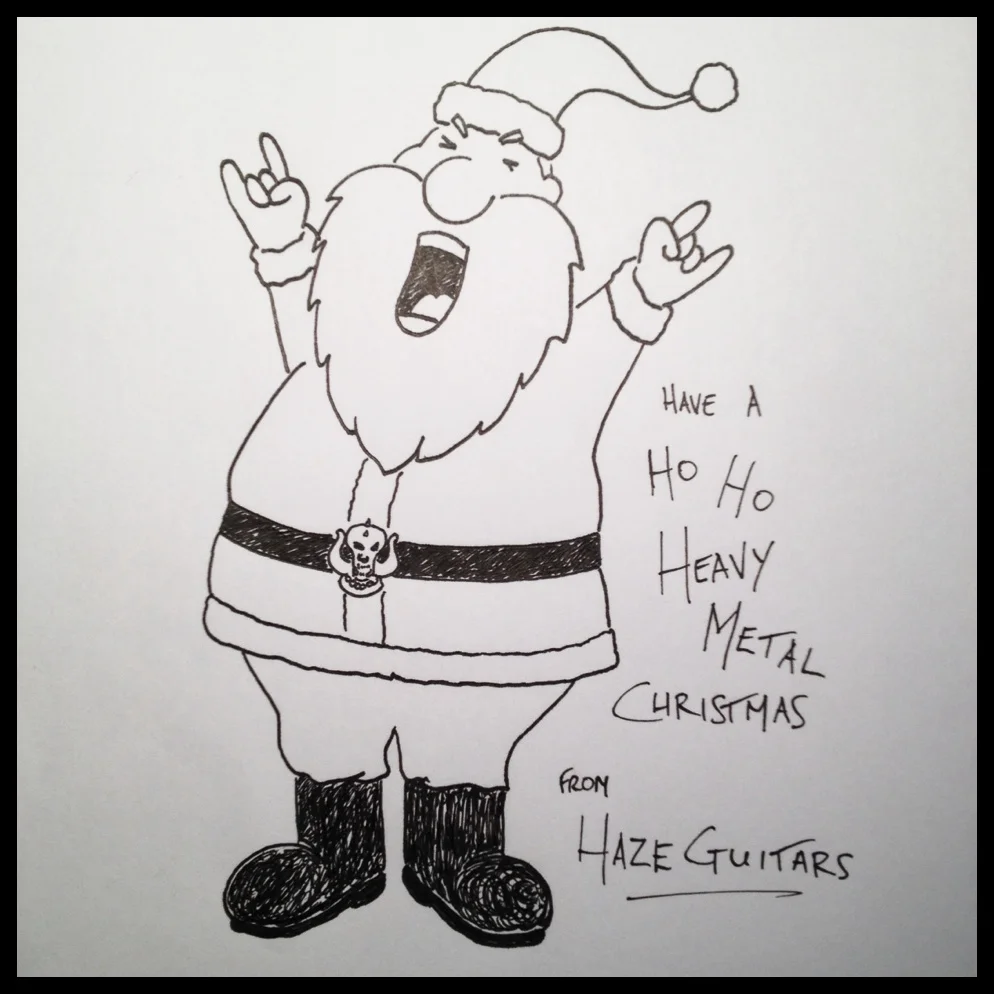 HAVE A
HO HO
HEAVY
METAL
CHRISTMAS
FROM
HAZE GUITARS